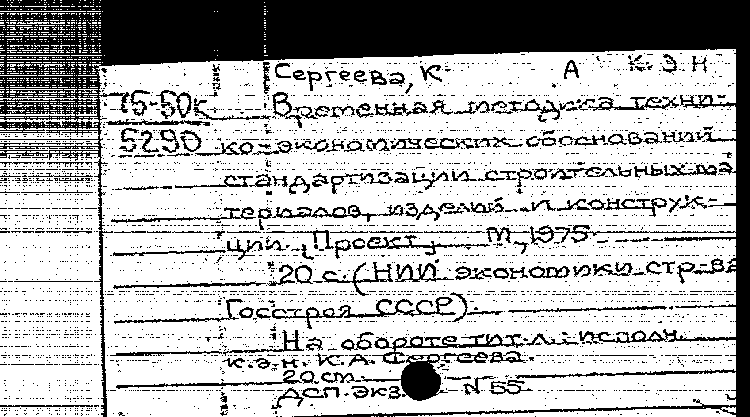 Сергеева, К А К. Э Н
75-50к Временная методика техни-
5290 ко-экономических обоснований
стандартизации строительных ма
териалов, изделий и конструк-
ции. [Проект] М., 1975.
20 с. (НИИ экономики стр-ва
Госстроя СССР).
На обороте тит. л.: исполн.
к.э.н. К.А. Сергеева.
20 см.
ДСП. Экз. N 55